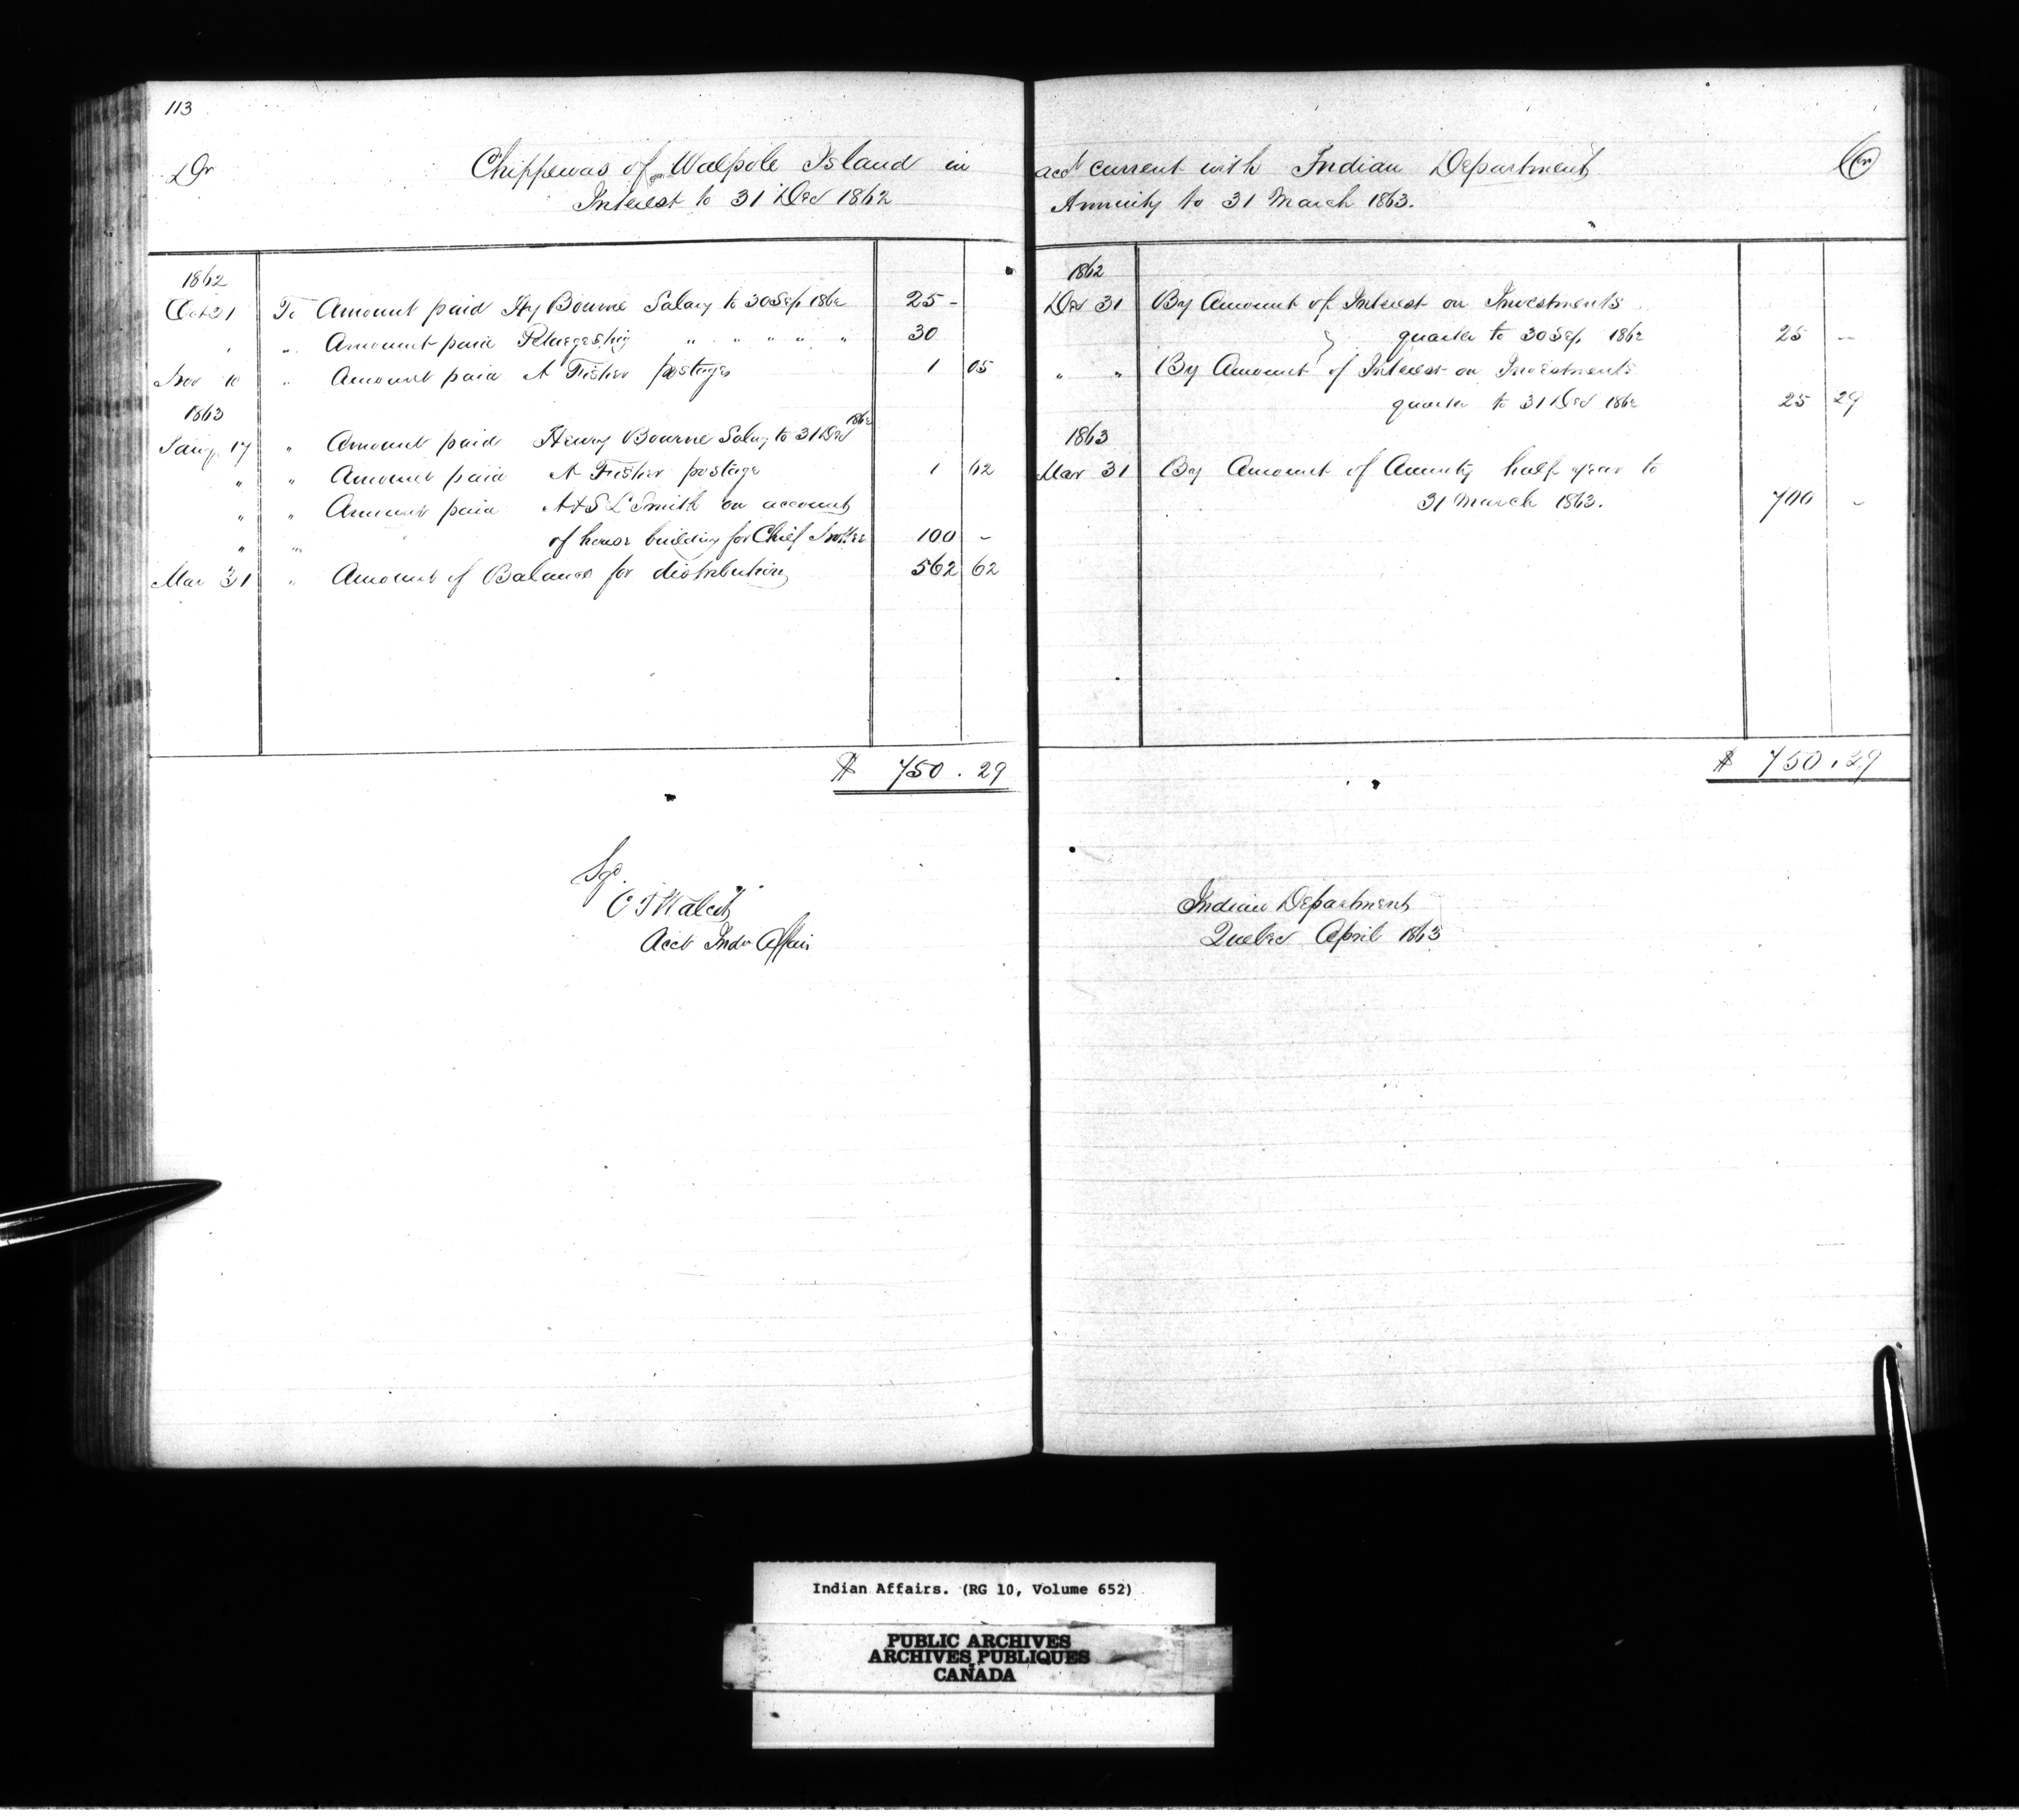 113
Dr
Chippewas of Walpole Island in
Interest to 31 Dec 1862
1862
Oct 21 To Amount paid Hy Bourne Salary to 30 Sep 1862 25 -
" " Amount paid " " " " " 30
Nov 10 " Amount paid A Fisher postages 1 05
1863
1862
Jany 17 " Amount paid Henry Bourne Salary to 31 Dec
" " Amount paid A Fisher postage 1 62
" " Amount paid A & S L Smith on account
" " of house building for Chief 100 -
Mar 31 " Amount of Balance for distribution 562 62
$ 750 . 29
Sgd.
C T Walcot
Acct Indn Affairs
acct current with Indian Department
Cr
Annuity to 31 March 1863.
1862
Dec 31 By Amount of Interest on Investments
quarter to 30 Sep 1862 25 -
" " By Amount of Interest on Investments
quarter to 31 Dec 1862 25 29
1863
Mar 31 By Amount of Annuity half year to
31 March 1863. 700 -
$ 750 . 29
Indian Department
Quebec April 1863
Indian Affairs. (RG 10, Volume 652)
PUBLIC ARCHIVES
ARCHIVES PUBLIQUES
CANADA